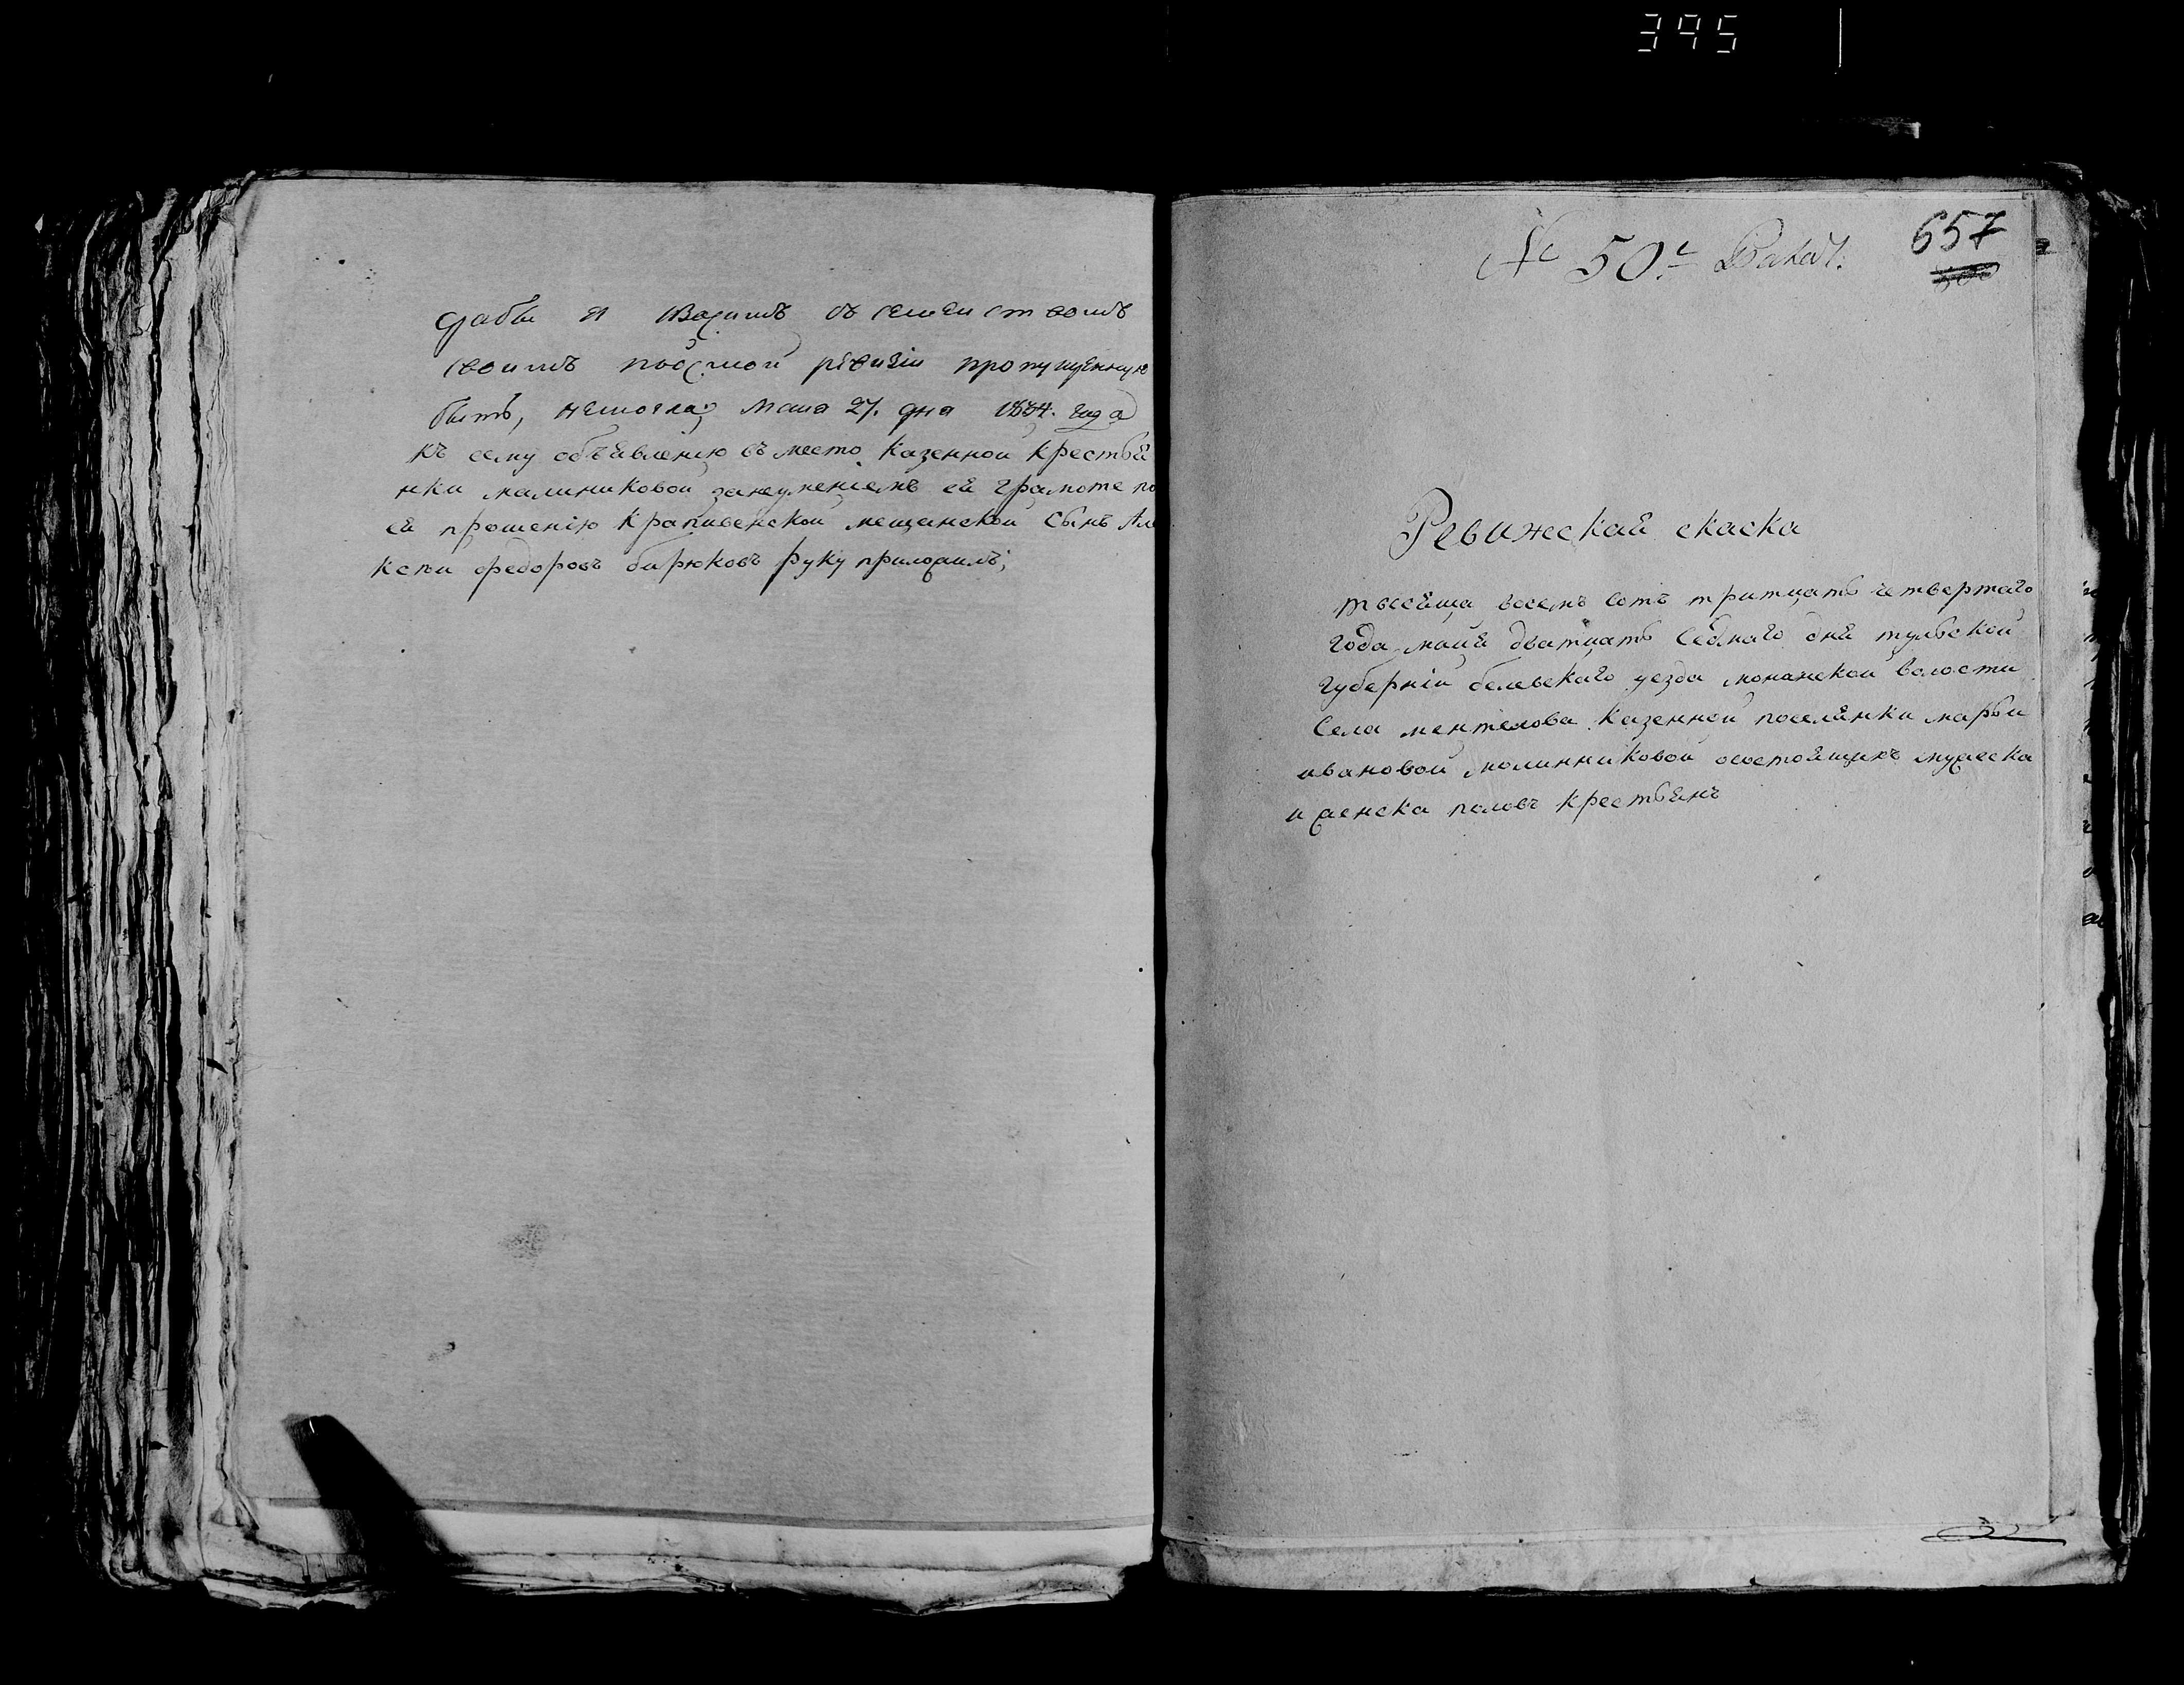 395
дабы я возимъ съ семеиствомъ
своимъ по 8 мои ревизіи пропущенную
быть, немогла; Маия 27. дня 1834. года
къ сему объявленію въ место казенной крестья
нки малиниковой занеумениемъ ей грамоте по
ей прошенію крапивенской мещанской сынъ Але
ксеи федоровъ бирюковъ руку приложилъ;
№ 50.й
657
Ревижеская скаска
тысяща восемъ сотъ тритцать четвертаго
года майя дватцать седмаго дня тульской
губерніи белевскаго уезда монанской волости
села ментелова казенной поселянки марьи
ивановой молинниковой осостоящихъ мужеска
и женска половъ крестьянъ